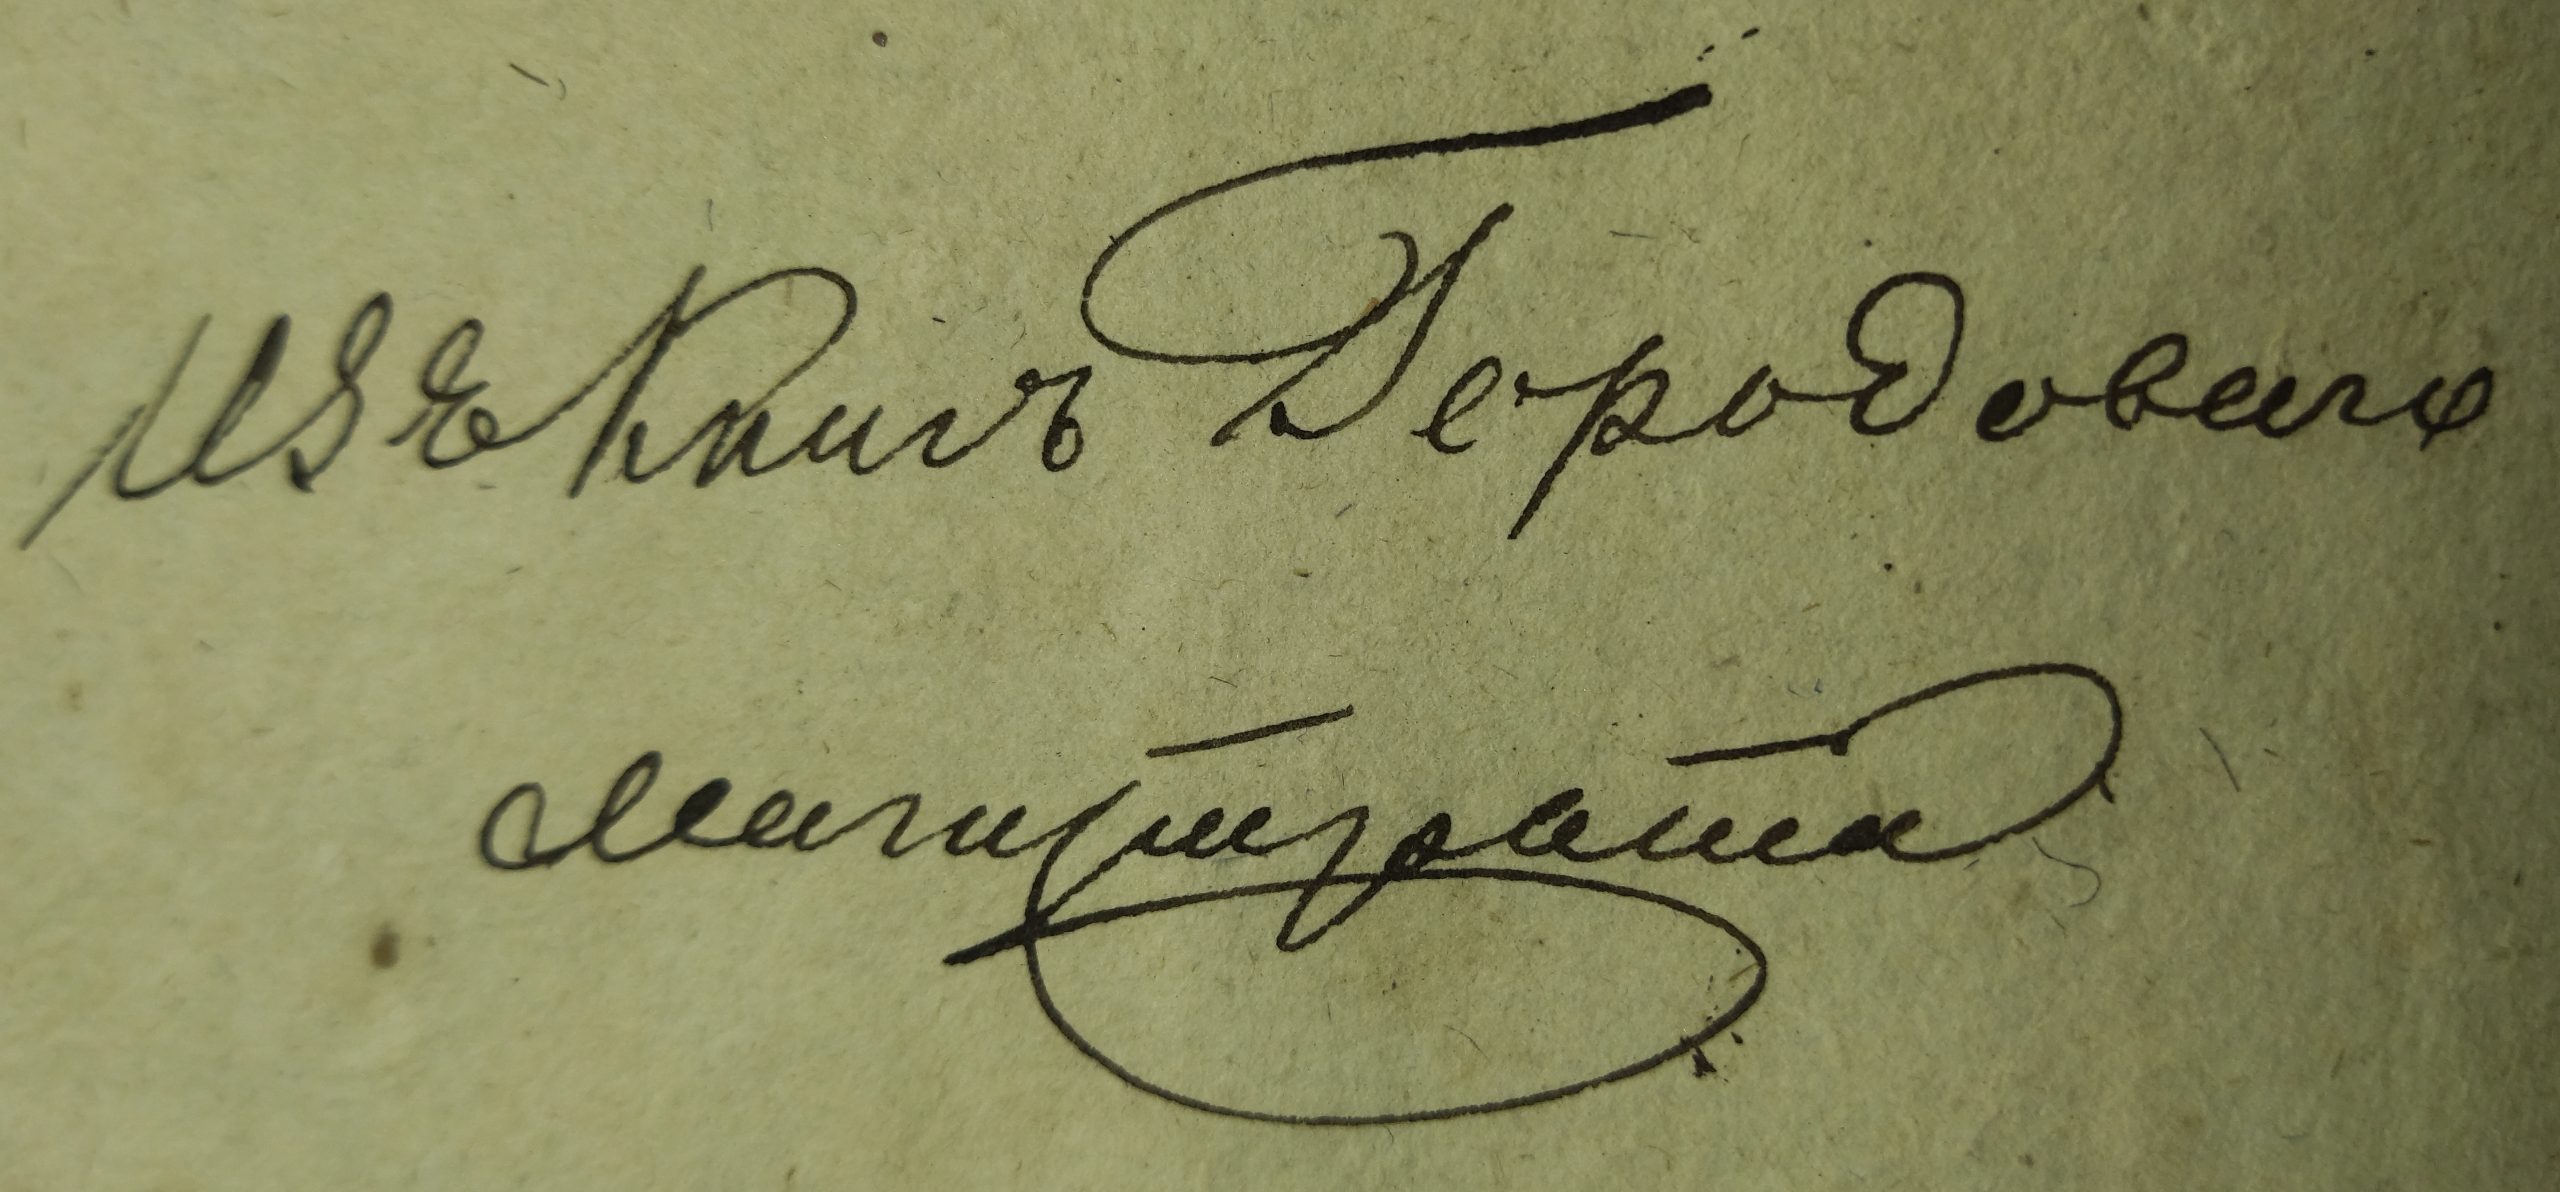 Изъ Книгъ Городоваго
магистрата